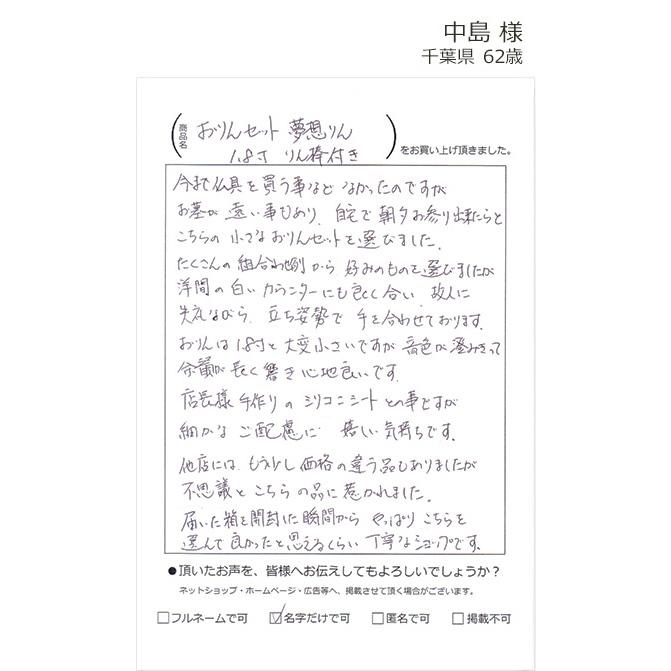 中島 様
千葉県 62歳
商品名
おりんセット 夢想りん
1.8寸 りん棒付き
をお買い上げ頂きました。
今まで仏具を買う事など なかったのですが
お墓が 遠い事もあり、自宅で 朝夕お参り出来たらと
こちらの 小さなおりんセットを 選びました。
たくさんの 組合わせ例 から 好みのものを 選びましたが
洋間の 白い カウンターにも 良く合い 故人に
失礼ながら 立ち姿勢で 手を合わせております。
おりんは 1.8寸と 大変小さいですが 音色が 澄みきって
余韻が 長く 響き 心地良いです。
店長様 手作りの シリコンシート との事ですが
細かな ご配慮に 嬉しい 気持ちです。
他店には もう少し 価格の 違う品もありましたが
不思議と こちらの品に 惹かれました。
届いた箱を開封した瞬間から やっぱり こちらを
選んで 良かったと 思えるくらい 丁寧なショップです。
●頂いたお声を、皆様へお伝えしてもよろしいでしょうか？
ネットショップ・ホームページ・広告等へ、掲載させて頂く場合がございます。
□フルネームで可 ☑名字だけで可 □匿名で可 □掲載不可